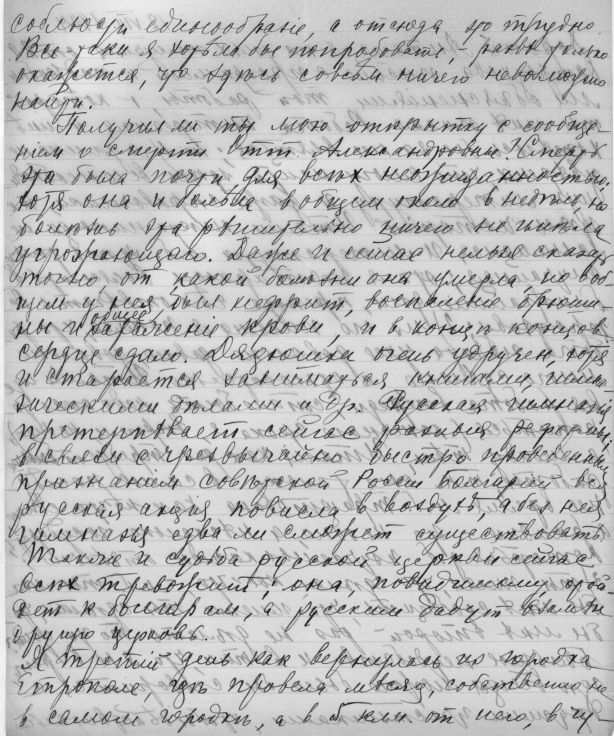 соблюсти единообразіе, а отсюда это трудно.
Все-таки я хотѣла бы попробовать, – разве только
окажется, что здѣсь совсѣм ничего невозможно
найти.
Получила ли ты мою открытку с сообще-
ніем о смерти Александровны? Смерть
эта была почти для всѣх неожиданностью,
хотя она и болѣла в общем около недѣль, но
болѣзнь эта рѣшительно ничего не имѣла
угрожающаго. Даже и сейчас нельзя сказать
точно, от какой болѣзни она умерла, но во-
щем у нея был нефрит, воспаленіе брюши-
ны и общее зараженіе крови, и в концѣ концов
сердце сдало. Дядюшка очень удручен, хотя
и старается заниматься книгами, гимна-
зическими дѣлами и др. Русская гимназія
претерпѣвает сейчас реформы
в связи с чрезвычайно быстро проведенным
признаніем совѣтской Россіи Болгаріей. Вся
русская акція повисла в воздухѣ, а без нея
гимназія едва ли сможет существовать.
Также и судьба русской церкви сейчас
всѣх тревожит; она, повидимому, отой-
дет к болгарам, а русским дадут взамѣн
другую церковь.
Я третій день как вернулась из городка
Етрополе, гдѣ провела мѣсяц, собственно не
в самом городкѣ, а в 5 клм от него, в чу-